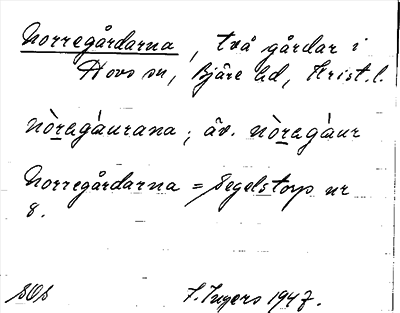 Norregårdarna, två gårdar i
Hovs sn, Bjäre hd, Krist. l.
nòragáurana; äv. nòragáur
Norregårdarna = Segelstorp nr
8.
SOS I. Ingers 1947.